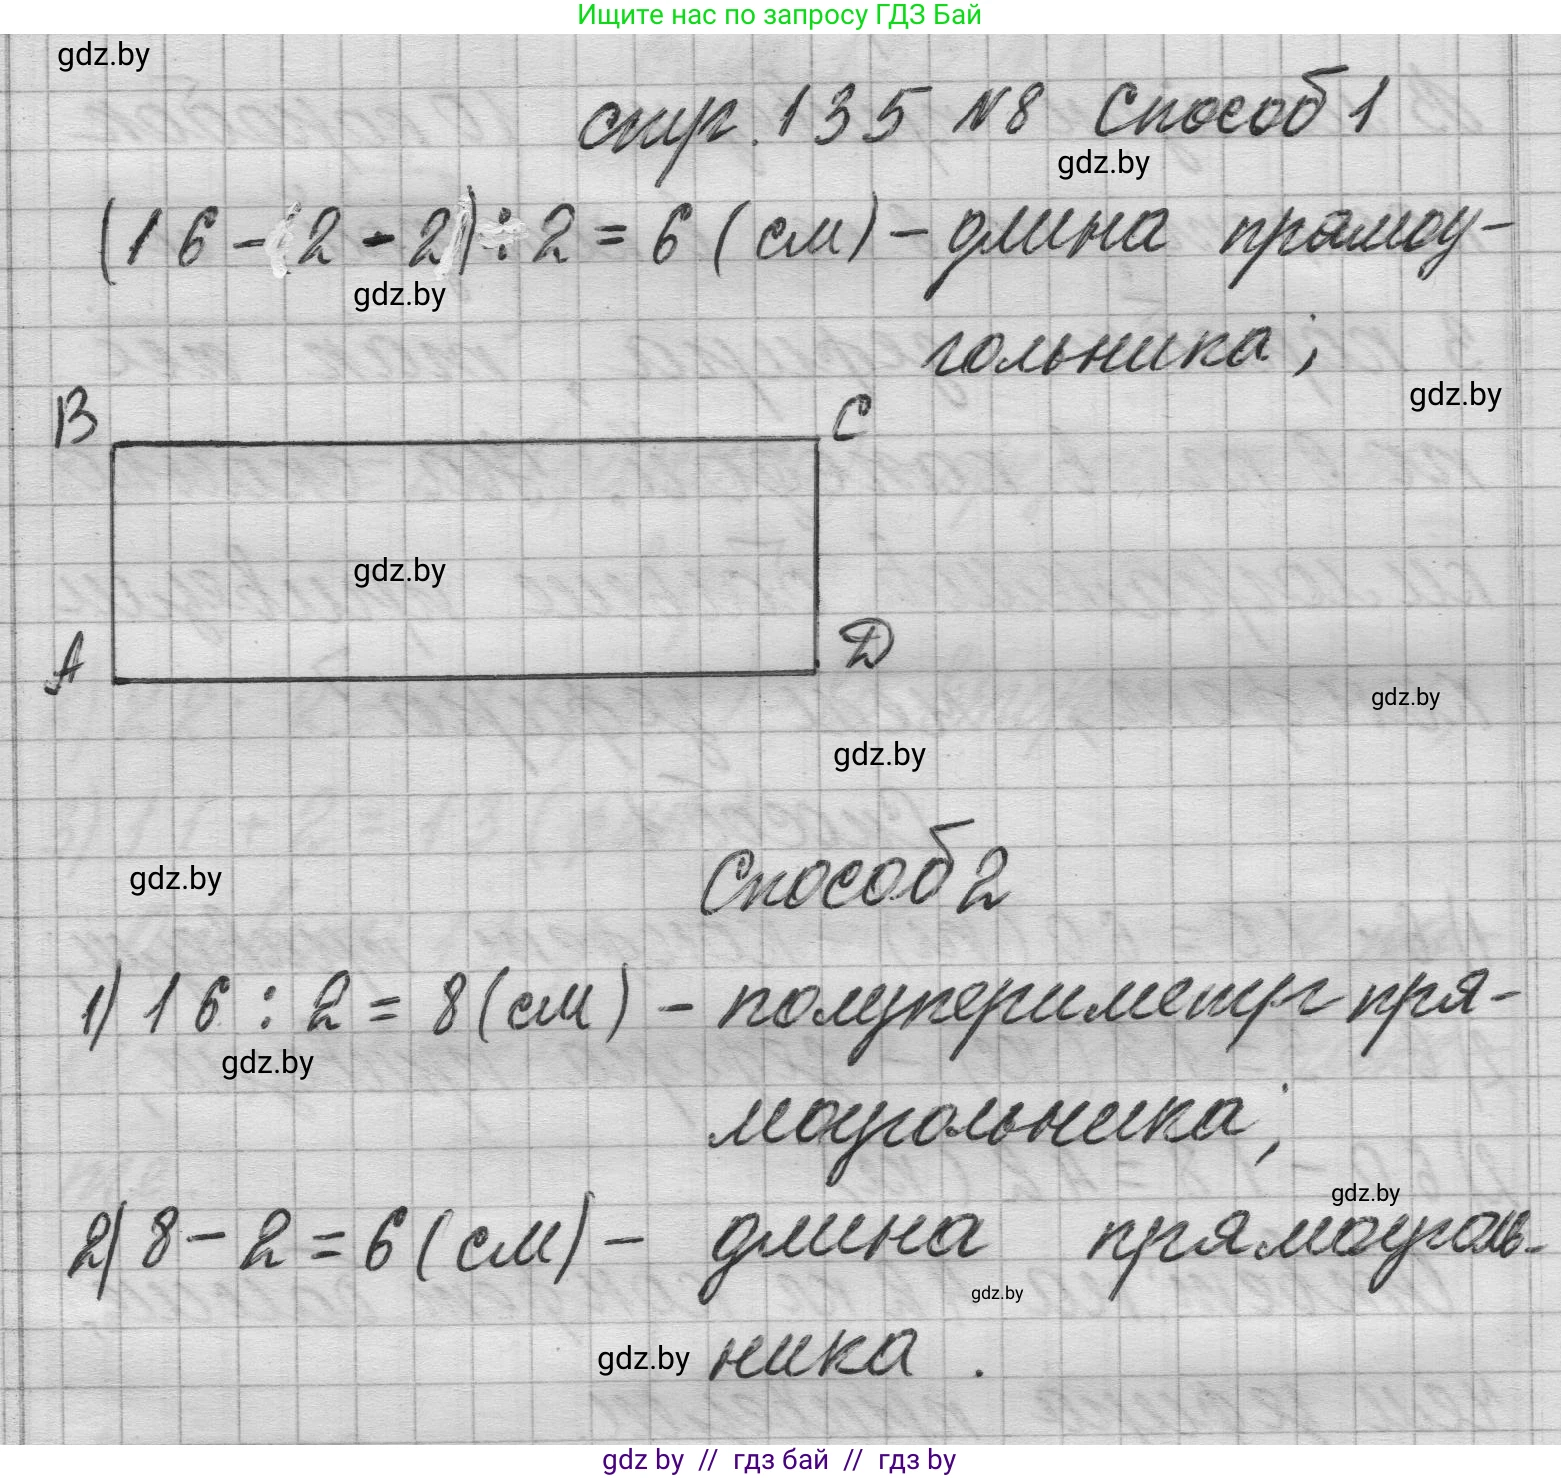 Ищите нас по запросу ГДЗ Бай
gdz.by
стр. 135 №8 Способ 1
gdz.by
(16 - 2 - 2) : 2 = 6 (см) - длина прямоу-
gdz.by
гольника;
gdz.by
B C
gdz.by
A D
gdz.by
gdz.by
Способ 2
gdz.by
1) 16 : 2 = 8 (см) - полупериметр пря-
gdz.by
моугольника;
gdz.by
2) 8 - 2 = 6 (см) - длина прямоуголь-
gdz.by
ника.
gdz.by
gdz by // гдз бай // гдз by